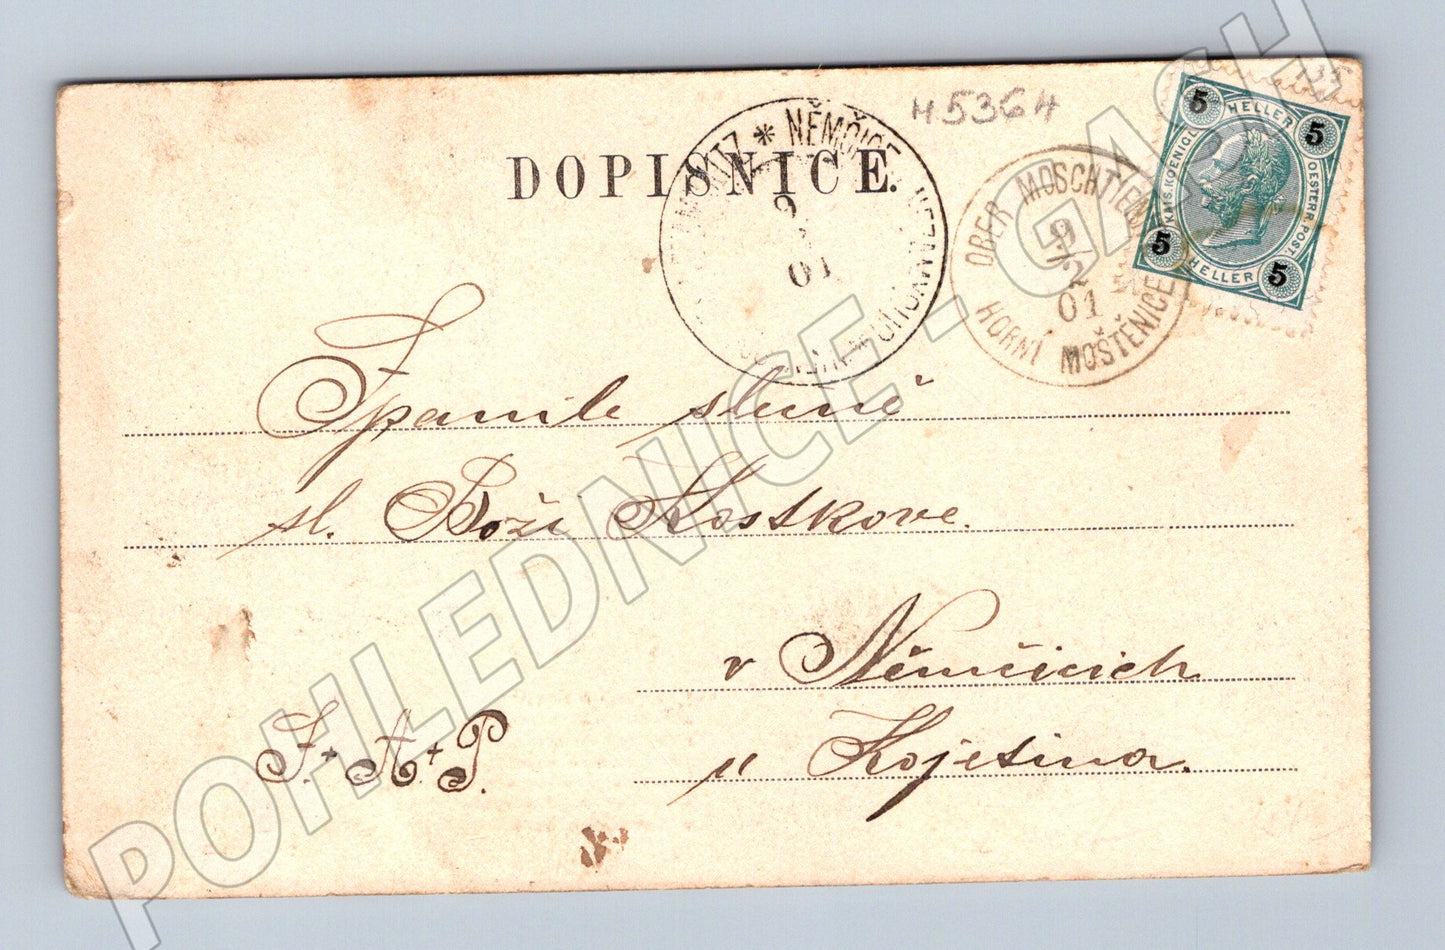 H5364
DOPISNICE.
NĚMČICE
9
01
OBER MOSCHTĚNITZ
9/2
01
HORNÍ MOŠTĚNICE
5 HELLER 5
KAIS. KOENIGL.
OESTERR. POST.
5 HELLER 5
Spanilé slečně
sl. Boži Kostkove.
v Němčicích
u Kojetína.
F. + A. + P.
POHLEDNICE - GASH